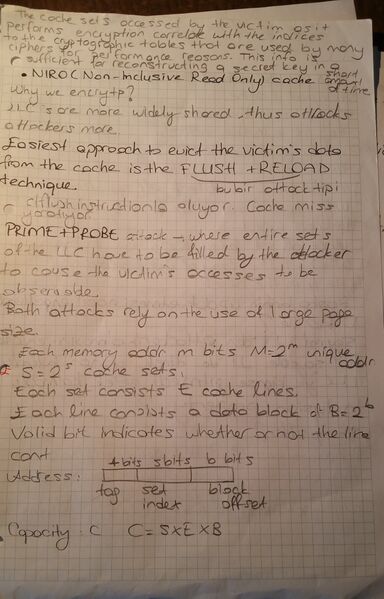 The cache sets accessed by the victim as it
performs encryption correlate with the indices
to the cryptographic tables that are used by many
ciphers for performance reasons. This info is
sufficient for reconstructing a secret key in a short amount of time
• NIRO (Non-Inclusive Read Only) cache
Why we encrytp?
LLC's are more widely shared, thus attracks
attackers more.
Easiest approach to evict the victim's data
from the cache is the FLUSH + RELOAD
technique.
bu bir attack tipi
clflush instruction'la oluyor. Cache miss
yaratıyor.
PRIME + PROBE attack → where entire sets
of the LLC have to be filled by the attacker
to cause the victim's accesses to be
observable.
Both attacks rely on the use of large page
size.
Each memory addr m bits M=2^m unique addr
S = 2^s cache sets.
Each set consists E cache lines.
Each line consists a data block of B=2^b
Valid bit indicates whether or not the line
cont
t bits s bits b bits
Address:
tag set index block offset
• Capacity: C C = S x E x B